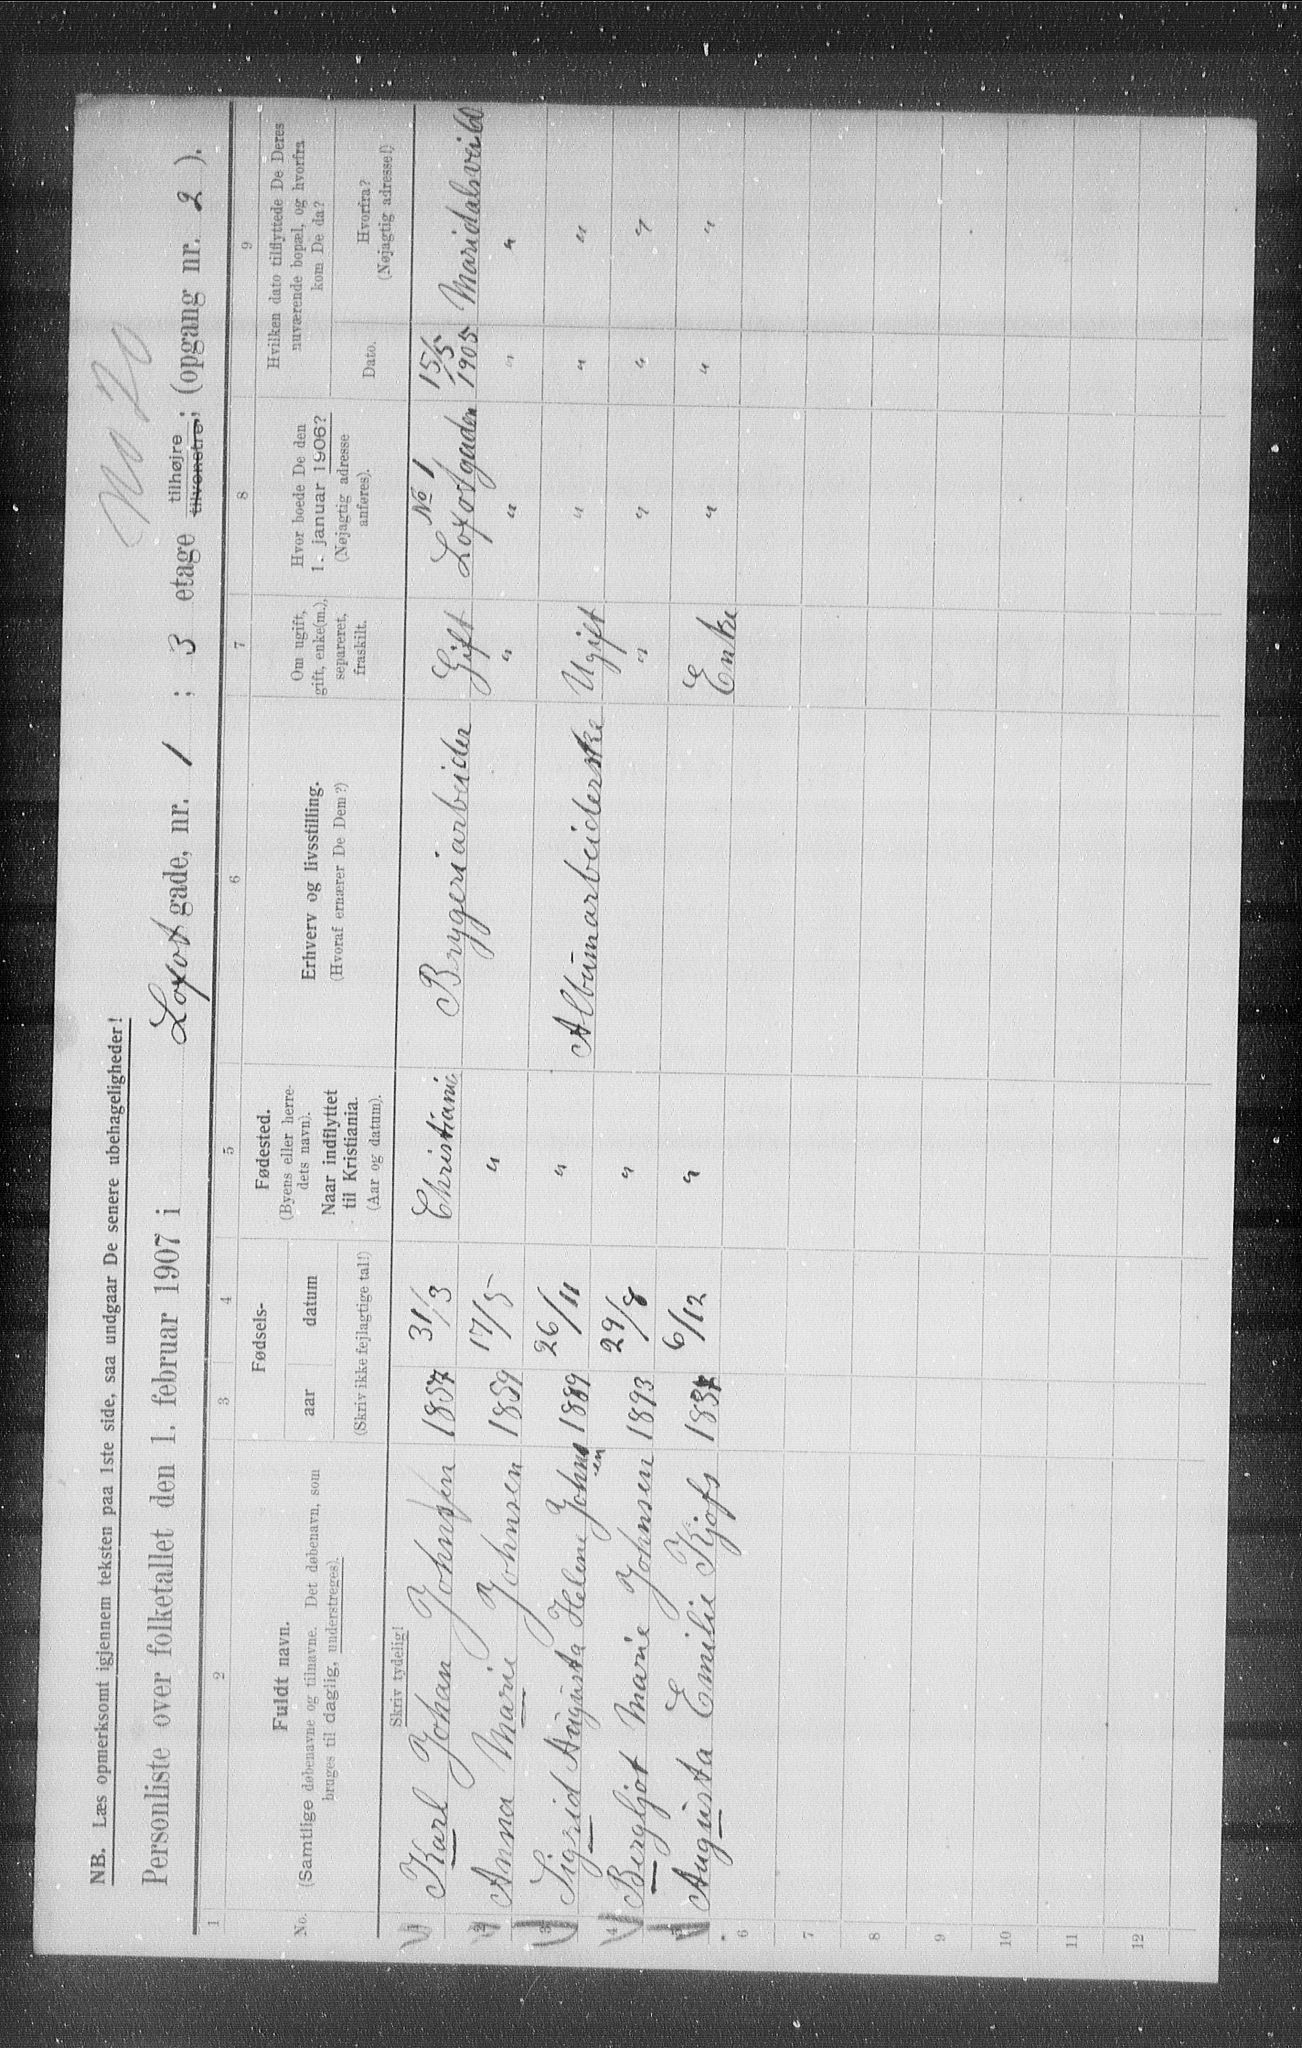 No 20
NB. Læs opmerksomt igjennem teksten paa 1ste side, saa undgaar De senere ubehageligheder!
Personliste over folketallet den 1. februar 1907 i Lofot gade, nr. 1 ; 3 etage tilhøjre tilvenstre; (opgang nr. 2 ).
1 2 3 4 5 6 7 8 9
No.
Fuldt navn.
(Samtlige døbenavne og tilnavne. Det døbenavn, som
bruges til daglig, understreges).
Fødsels-
aar datum
(Skriv ikke fejlagtige tal!)
Fødested.
(Byens eller herre-
dets navn).
Naar indflyttet
til Kristiania.
(Aar og datum).
Erhverv og livsstilling.
(Hvoraf ernærer De Dem?)
Om ugift,
gift, enke(m.),
separeret,
fraskilt.
Hvor boede De den
1. januar 1906?
(Nøjagtig adresse
anføres).
Hvilken dato tilflyttede De Deres
nuværende bopæl, og hvorfra
kom De da?
Dato.
Hvorfra?
(Nøjagtig adresse!)
Skriv tydelig!
1 Karl Johan Johnsen 1857 31/3 Christiania Brygeriarbeider Gift No 1 Lofotgaden 15/5 1905 Maridalsvei
2 Anna Marie Johnsen 1859 17/5 " " " " "
3 Sigrid Augusta Helene Johnsen 1889 26/11 " Albumarbeiderske Ugift " " "
4 Bergljot Marie Johnsen 1893 29/8 " " " " "
5 Augusta Emilie 6/12 " Enke " " "
6
7
8
9
10
11
12